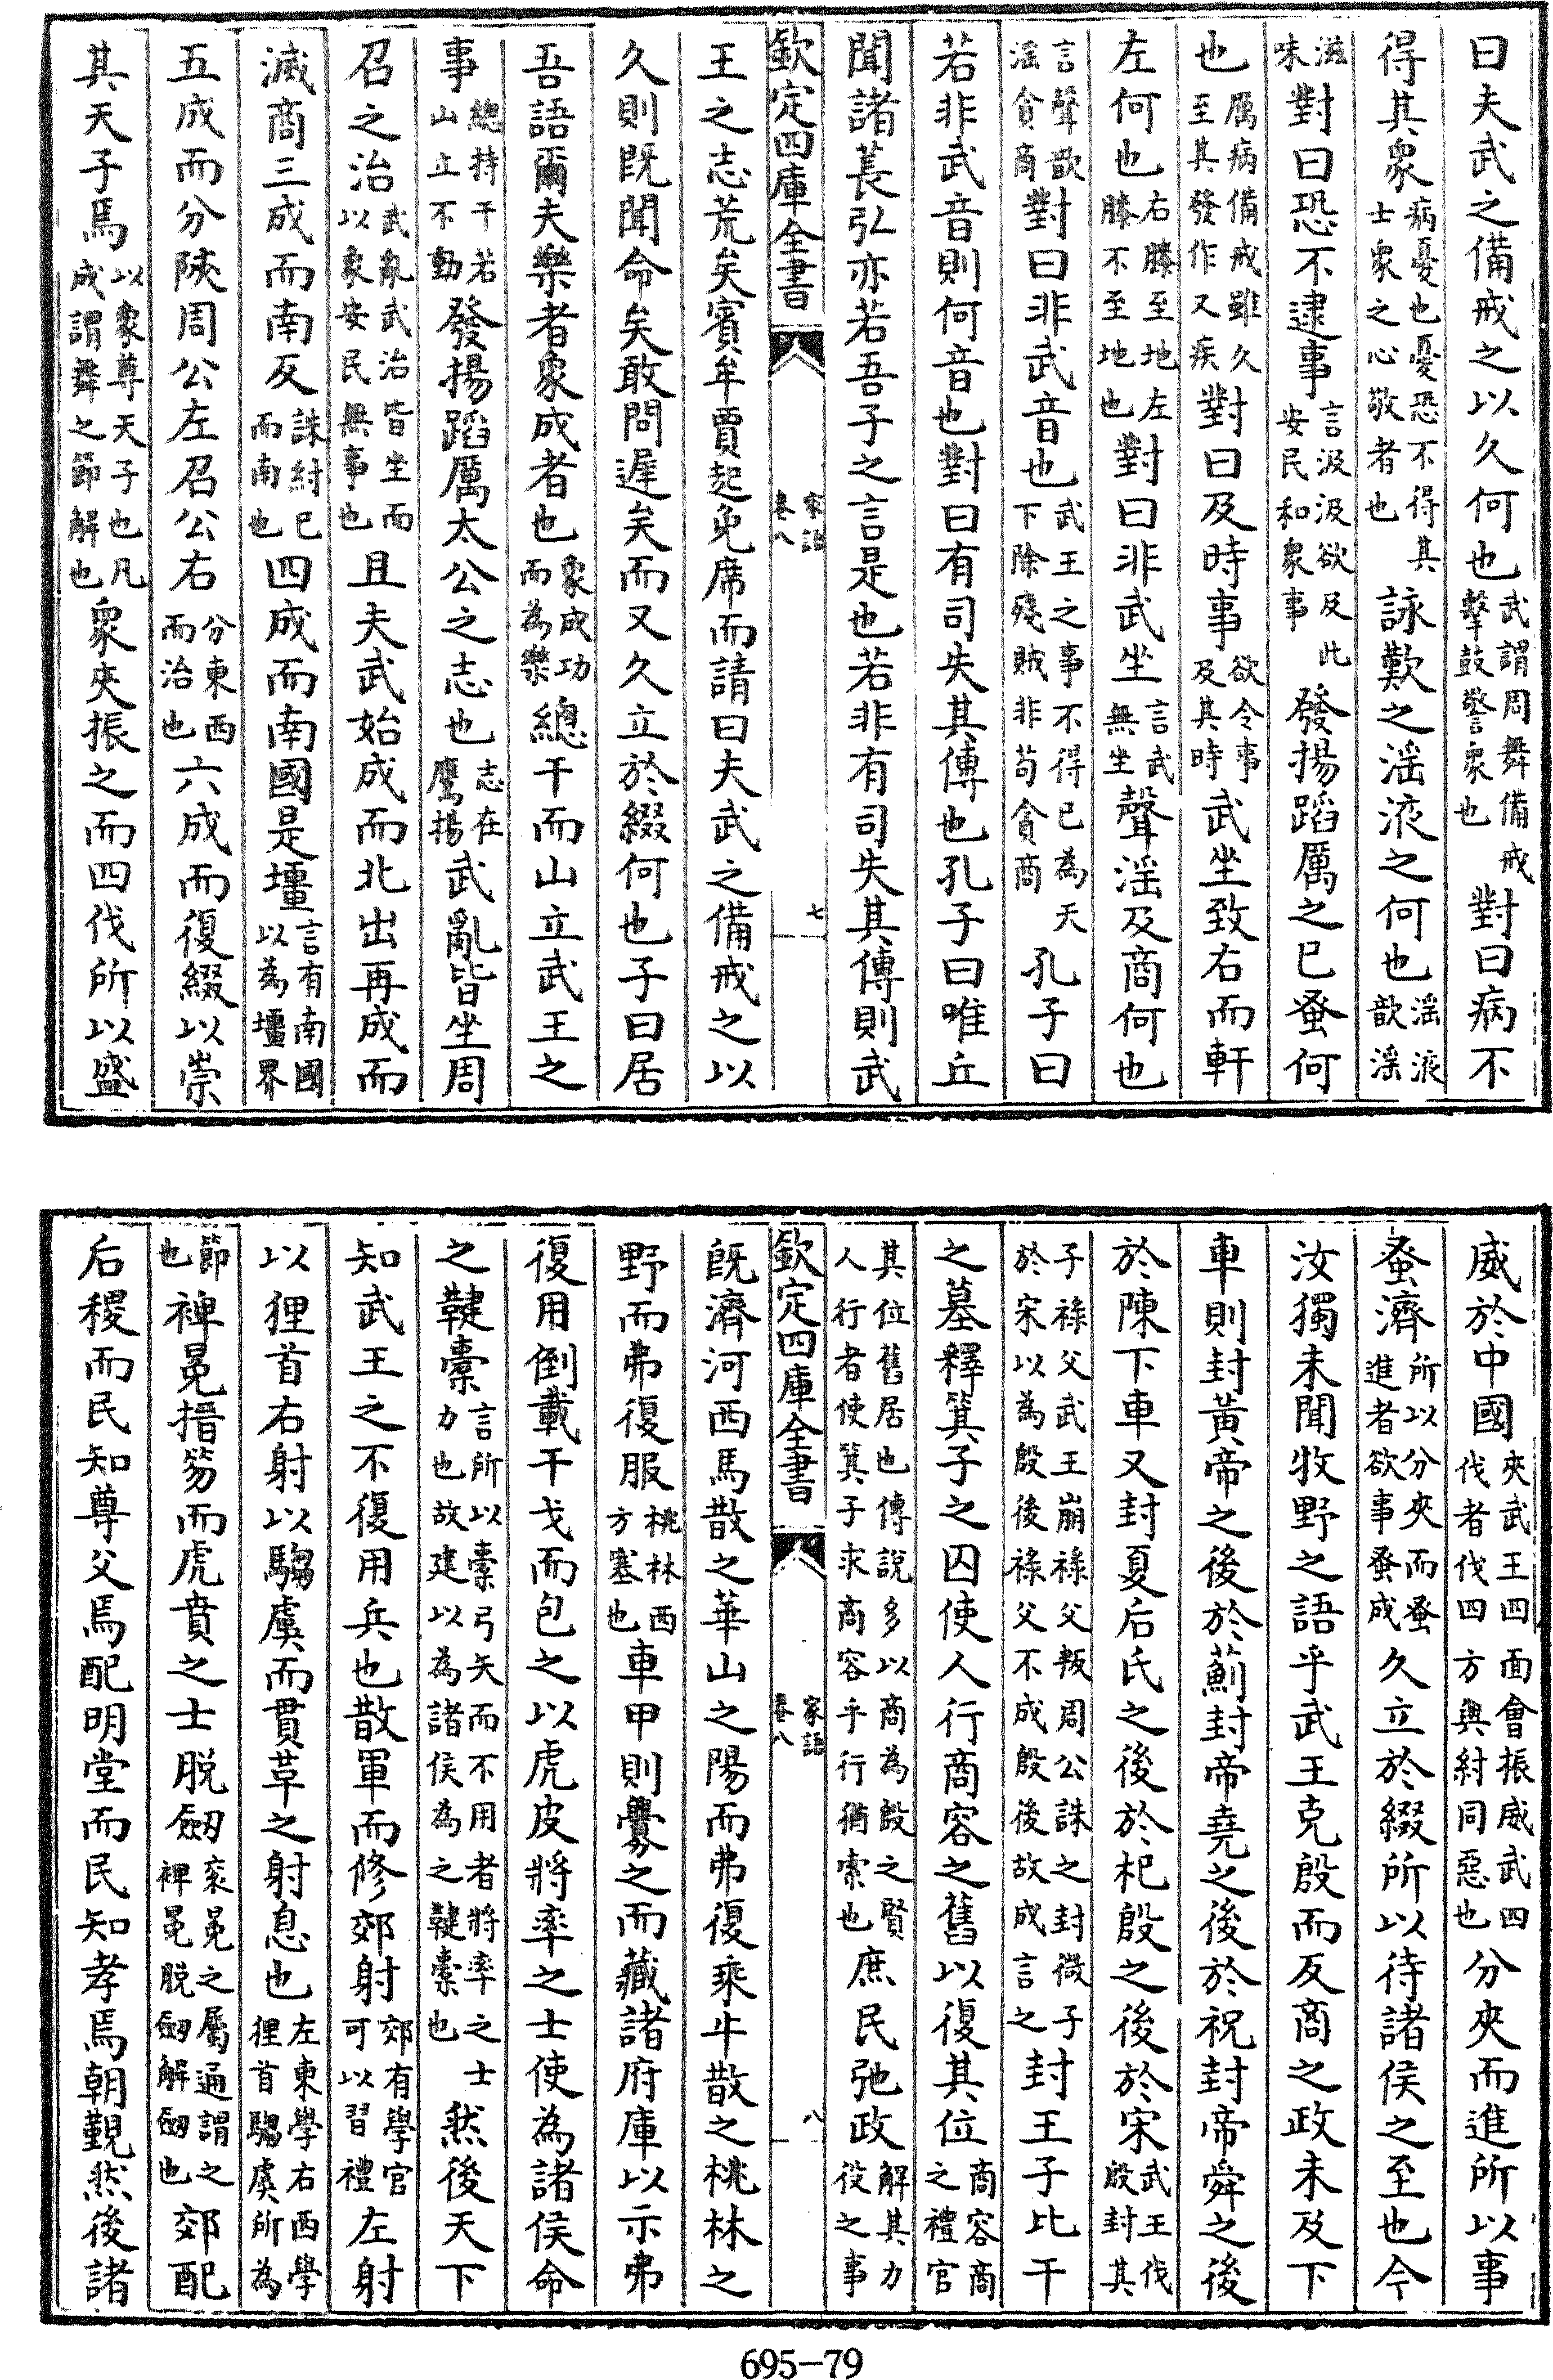 曰夫武之備戒之以久何也武謂周舞備戒擊鼓警衆也對曰病不
得其衆病憂也憂恐不得其士衆之心敬者也詠歎之滛液之何也滛液歆滛
滋味對曰恐不逮事言汲汲欲及此安民和衆事發揚蹈厲之已蚤何
也厲病備戒雖久至其發作又疾對曰及時事欲令事及其時武坐致右而軒
左何也右膝至地左膝不至地也對曰非武坐言武無坐聲滛及商何也
言聲歆滛貪商對曰非武音也武王之事不得已為天下除殘賊非苟貪商孔子曰
若非武音則何音也對曰有司失其傳也孔子曰唯丘
聞諸萇弘亦若吾子之言是也若非有司失其傳則武
欽定四庫全書 家語卷八 七
王之志荒矣賓牟賈起免席而請曰夫武之備戒之以
久則既聞命矣敢問遲矣而又久立於綴何也子曰居
吾語爾夫樂者象成者也象成功而為樂總干而山立武王之
事總持干若山立不動發揚蹈厲太公之志也志在鷹揚武亂皆坐周
召之治武亂武治皆坐而以象安民無事也且夫武始成而北出再成而
滅商三成而南反誅紂已而南也四成而南國是壃言有南國以為壃界
五成而分陜周公左召公右分東西而治也六成而復綴以崇
其天子焉以象尊天子也凡成謂舞之節解也衆夾振之而四伐所以盛
威於中國夾武王四面會振威武四伐者伐四方與紂同惡也分夾而進所以事
蚤濟所以分夾而蚤進者欲事蚤成久立於綴所以待諸侯之至也今
汝獨未聞牧野之語乎武王克殷而反商之政未及下
車則封黃帝之後於薊封帝堯之後於祝封帝舜之後
於陳下車又封夏后氏之後於杞殷之後於宋武王伐殷封其
子祿父武王崩祿父叛周公誅之封微子於宋以為殷後祿父不成殷後故成言之封王子比干
之墓釋箕子之囚使人行商容之舊以復其位商容商之禮官
其位舊居也傳說多以商為殷之賢人行者使箕子求商容乎行猶索也庶民弛政解其力役之事
欽定四庫全書 家語卷八 八
既濟河西馬散之華山之陽而弗復乘牛散之桃林之
野而弗復服桃林西方塞也車甲則釁之而藏諸府庫以示弗
復用倒載干戈而包之以虎皮將率之士使為諸侯命
之鞬櫜言所以櫜弓矢而不用者將率之士力也故建以為諸侯為之鞬櫜也然後天下
知武王之不復用兵也散軍而修郊射郊有學官可以習禮左射
以狸首右射以騶虞而貫革之射息也左東學右西學狸首騶虞所為
節也裨冕搢笏而虎賁之士脱劒衮冕之屬通謂之裨冕脱劒解劒也郊配
后稷而民知尊父焉配明堂而民知孝焉朝覲然後諸
695-79